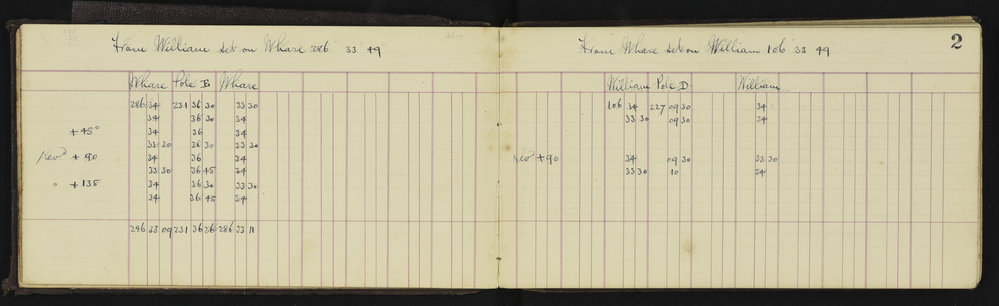 From William set on Whare 286 33 49
Whare Pole E Whare
286 34 231 36 30 33 30
34 36 30 34
+ 45° 34 36 34
33 30 36 30 33 30
Rev^d + 90 34 36 34
33 30 36 45 34
" + 135 34 36 30 33 30
34 36 45 34
286 33 09 231 36 26 286 33 11
2
From Whare set on William 106 33 49
William Pole D William
106 34 227 09 30 34
33 30 09 30 34
Rev^d +90 34 09 30 33 30
33 30 10 34